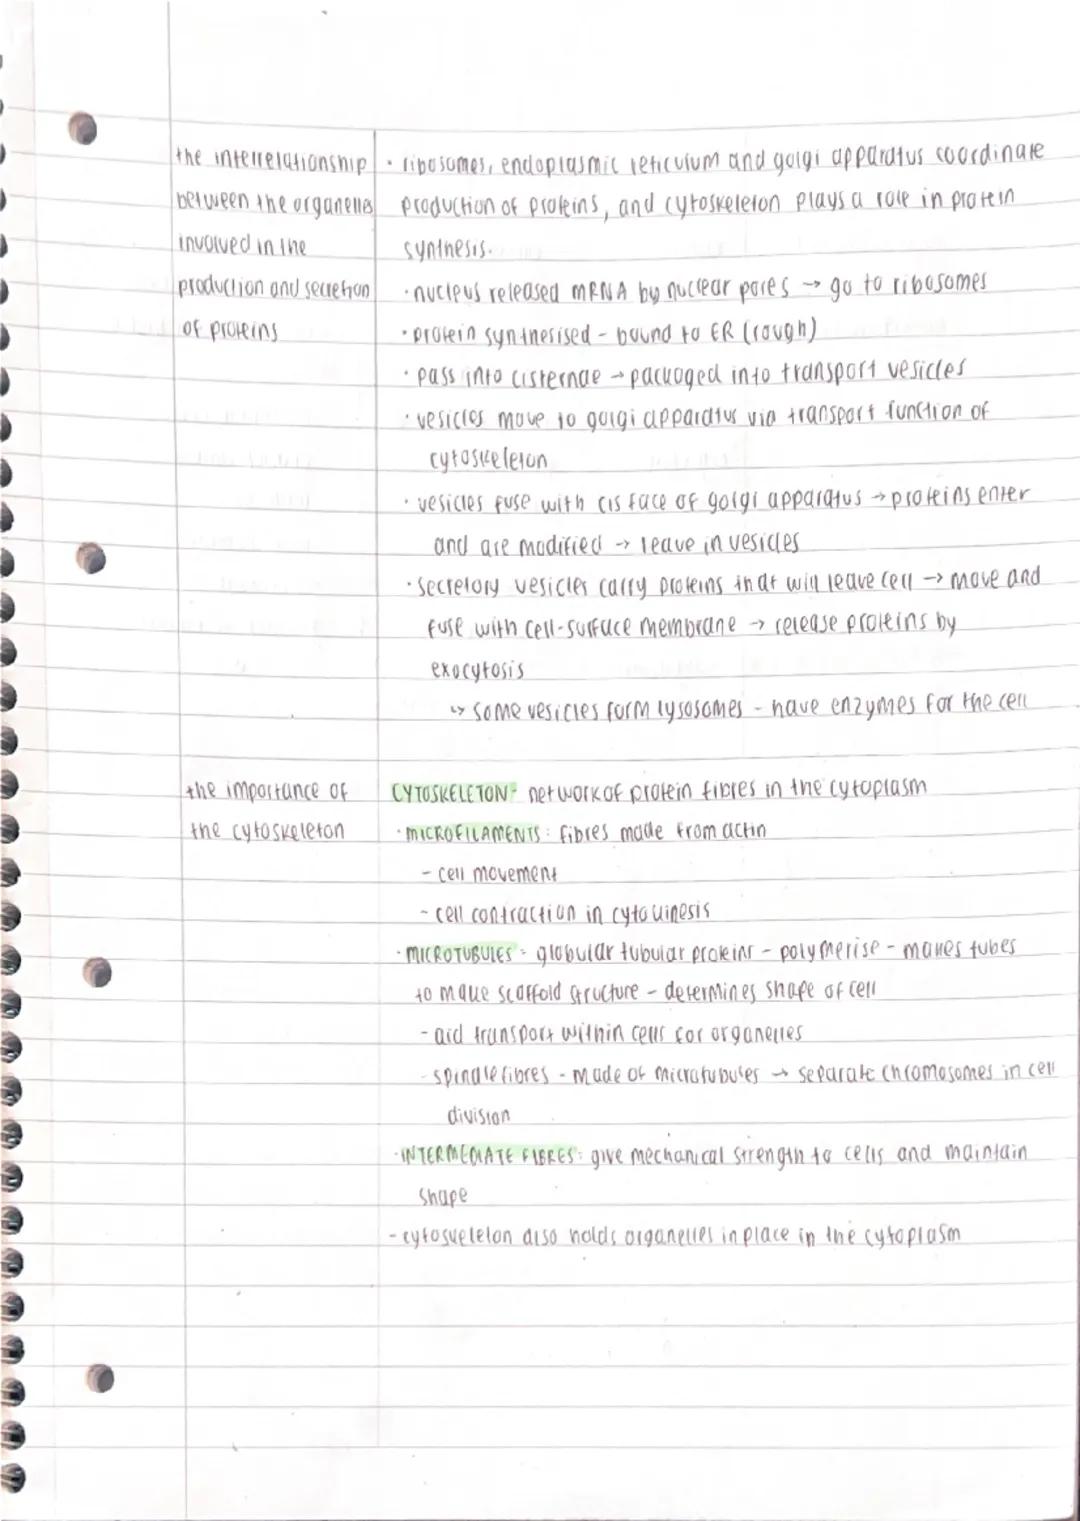 the interrelationship
between the organelles
involved in the
production and secretion
of proteins
· ribosomes, endoplasmic reticulum and golgi apparatus coordinate
production of proteins, and cytoskeleton plays a role in protein
synthesis.
· nucleus released mRNA by nuclear pores → go to ribosomes
· protein synthesised - bound to ER (rough)
· pass into cisternae → packaged into transport vesicles
· vesicles move to golgi apparatus via transport function of
cytoskeleton
· vesicles fuse with cis face of golgi apparatus → proteins enter
and are modified → leave in vesicles
· secretory vesicles carry proteins that will leave cell → move and
fuse with cell-surface membrane → release proteins by
exocytosis
↳ some vesicles form lysosomes - have enzymes for the cell
the importance of
the cytoskeleton
CYTOSKELETON: network of protein fibres in the cytoplasm
· MICROFILAMENTS: fibres made from actin
- cell movement
- cell contraction in cytokinesis
· MICROTUBULES: globular tubular proteins - polymerise - makes tubes
to make scaffold structure - determines shape of cell
- aid transport within cells for organelles
- spindle fibres - made of microtubules → separate chromosomes in cell
division
· INTERMEDIATE FIBRES: give mechanical strength to cells and maintain
shape
- cytoskeleton also holds organelles in place in the cytoplasm